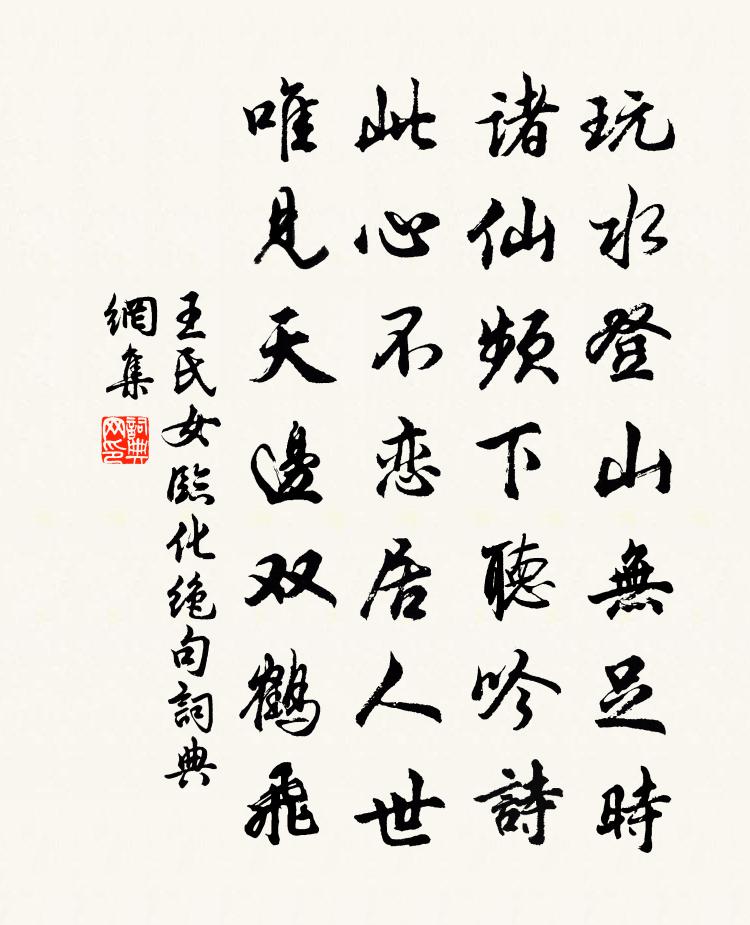 玩水登山無足時
諸仙頻下聽吟詩
此心不恋居人世
唯見天邊双鶴飛
王氏女臨化绝句詞典
網集
詞典網印